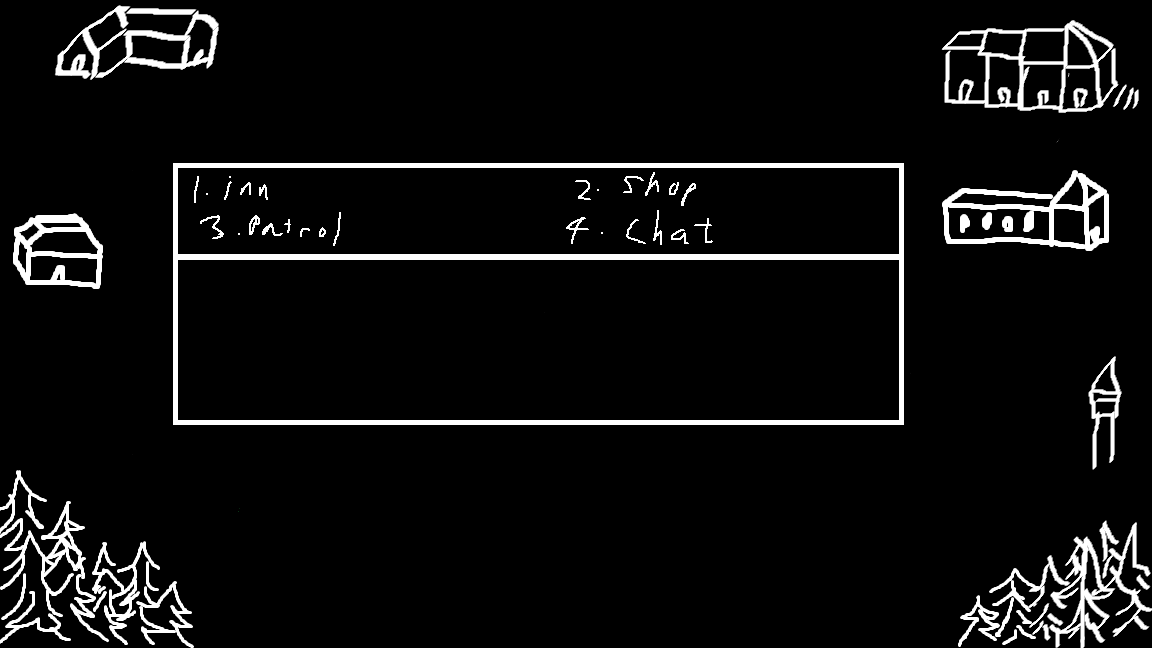 1. inn 2. Shop
3. Patrol 4. Chat